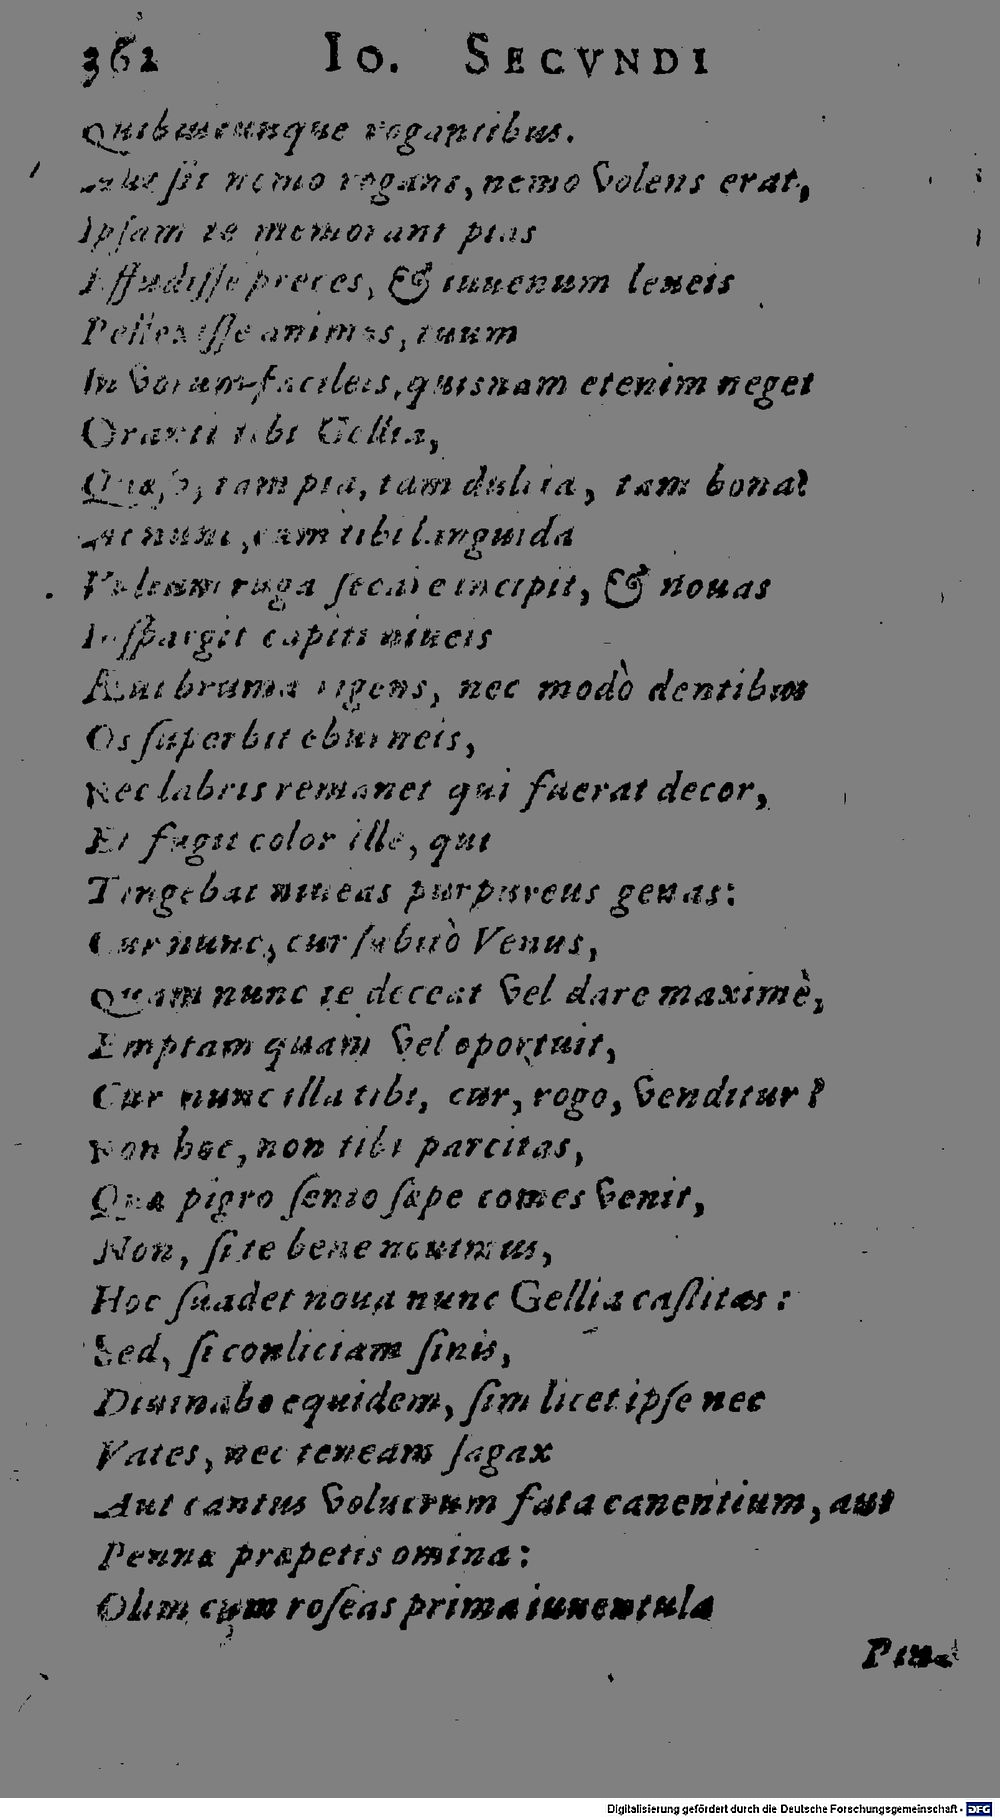 362 IO. SECVNDI
Quibuscunque rogantibus.
Aut sit nemo rogans, nemo volens erat,
Ipsam te memorant pias
Effudisse preces, & iuuenum leneis
Pellexisse animos, tuum
In votum facileis, quisnam etenim neget
Oranti tibi Gellia,
Quæso, tam pia, tam dulcia, tam bona?
At nunc, cum tibi languida
Pellem ruga secare incipit, & nouas
Inspargit capiti niueis
Æui bruma rigens, nec modò dentibus
Os superbit eburneis,
Nec labris remanet qui fuerat decor,
Et fugit color ille, qui
Tingebat niueas purpureus genas:
Cur nunc, cur subitò Venus,
Quam nunc te deceat vel dare maximè,
Emptam quam vel oportuit,
Cur nunc illa tibi, cur, rogo, venditur?
Non hoc, non tibi parcitas,
Quæ pigro senio sæpe comes venit,
Non, si te bene nouimus,
Hoc suadet noua nunc Gellia castitas:
Sed, si conliciam sinis,
Diuinabo equidem, sim licet ipse nec
Vates, nec teneam sagax
Aut cantus volucrum fata canentium, aut
Pennæ præpetis omina:
Olim cum roseas prima iuuentula
Digitalisierung gefördert durch die Deutsche Forschungsgemeinschaft - DFG